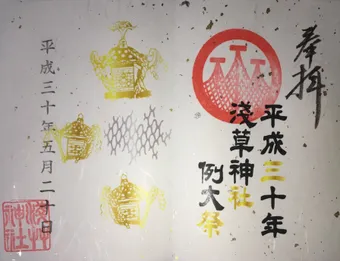 奉拝
平成三十年
淺草神社
例大祭
平成三十年五月二十日